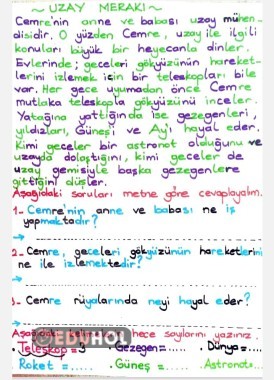 ~ UZAY MERAKI ~
Cemre'nin anne ve babası uzay mühen-
disidir. O yüzden Cemre, uzay ile ilgili
konuları büyük bir heyecanla dinler.
Evlerinde; geceleri gökyüzünün hareket-
lerini izlemek için bir teleskopları bile
var. Her gece uyumadan önce Cemre
mutlaka teleskopla gökyüzünü inceler.
Yatağına yattığında ise gezegenleri,
yıldızları, Güneşi ve Ay'ı hayal eder.
Kimi geceler bir astronot olduğunu ve
uzayda dolaştığını, kimi geceler de
uzay gemisiyle başka gezegenlere
gittiğini düşler.
Aşağıdaki soruları metne göre cevaplayalım.
1- Cemre'nin anne ve babası ne iş
yapmaktadır?
2- Cemre, geceleri gökyüzünün hareketlerini
ne ile izlemektedir?
3- Cemre rüyalarında neyi hayal eder?
Aşağıdaki hece sayılarını yazınız.
• Teleskop = 3 • Gezegen = ..... • Dünya = .....
Roket = ..... • Güneş = ..... Astronot = .....
EDUHOL